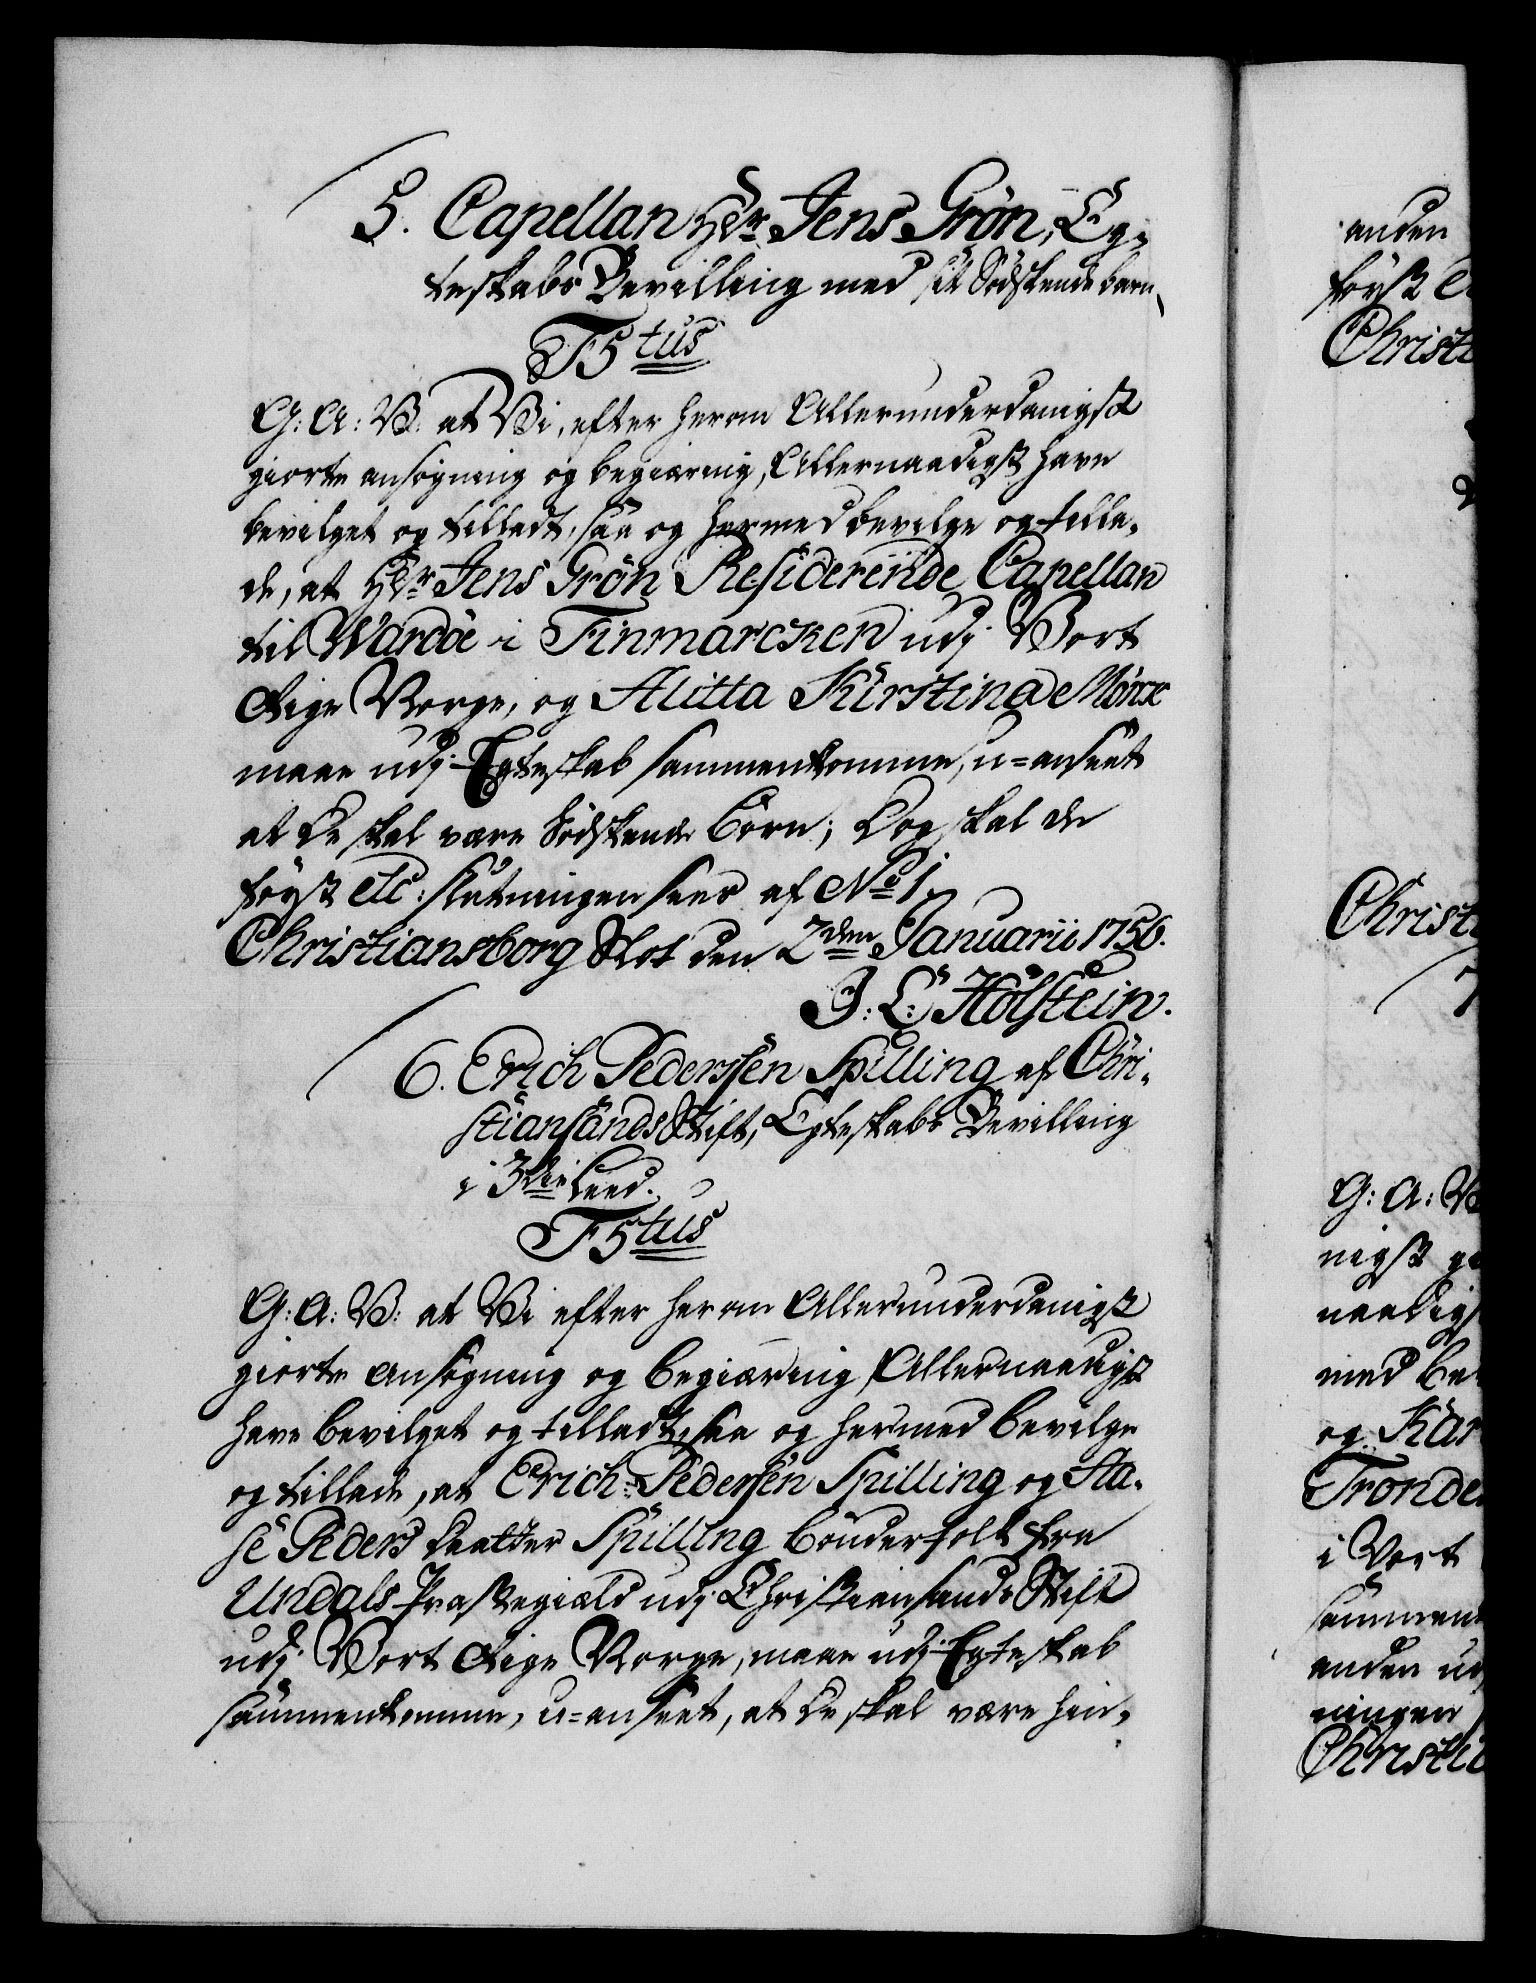 5. Capellan Hr. Jens Grøn, Eg-
teskabs Bevilling med sit Södskende barn,
F5tus
G: A: V: at Vi, efter herom Allerunderdanigst
giorte ansøgning og begiæring, Allernaadigst have
bevilget og tilladt, saa og hermed bevilge og tilla-
de, at Hr. Jens Grøn Residerende Capellan
til Wardöe i Finmarcken udj Vort
Rige Norge, og Alitta Kirstina Mönic
maae udj Egteskab sammenkomme, u=anseet
at De skal være Södskende Börn; Dog skal de
først etc: slutningen sees af No. 1.
Christiansborg Slot den 2den Januarii 1756.
J: L: Holstein.
6. Erich Pederssen Spilling af Chri-
stiansands Stift, Egteskabs Bevilling
i 3die Leed.
F5tus
G: A: V: at Vi efter herom Allerunderdanigst
giorte Ansøgning og begiæring Allernaadigst
have bevilget og tilladt, saa og hermed bevilge
og tillade, at Erich Pedersen Spilling og Aa-
se Peders Daatter Spilling bönderfolk fra
Undals Præstegiæld udj Christiansands Stift
udj Vort Rige Norge, maae udj Egteskab
sammenkomme, u=anseet, at De skal være hin-
anden
først
Christi
Christi
7
G: A: V
nigst
naadigs
med be
og Kar
Tronde
i Vort
sammen
anden ud
ningen
Christi